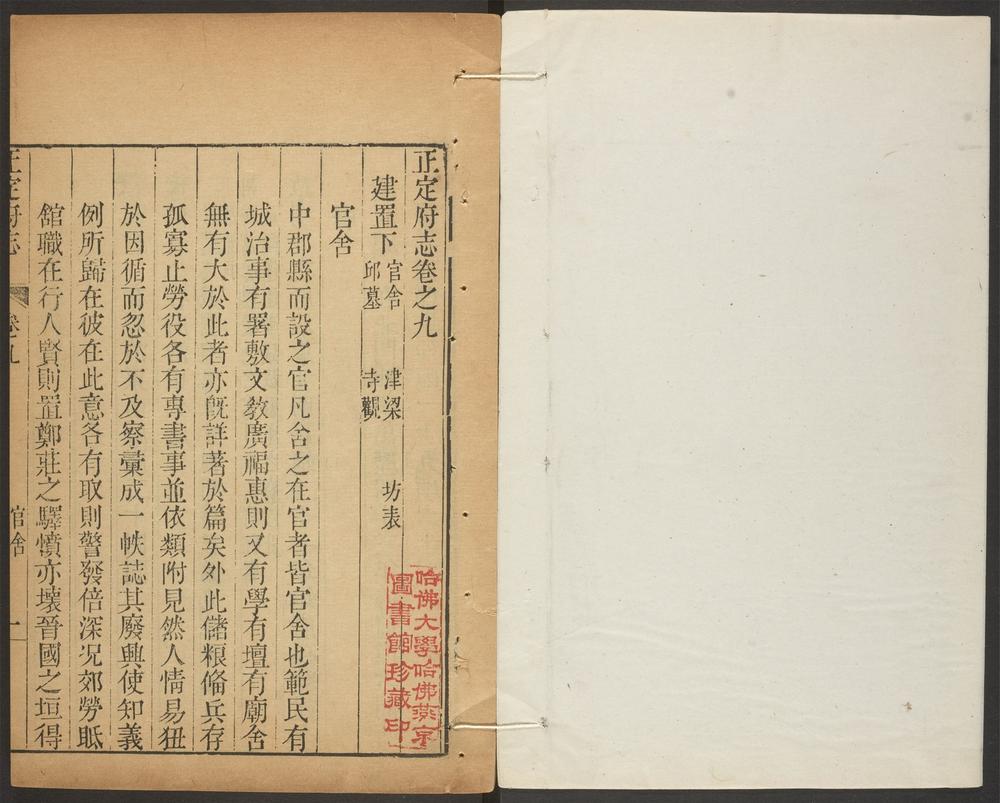 正定府志卷之九
建置下 官舍 津梁 坊表
邱墓 寺觀
官舍
中郡縣而設之官凡舍之在官者皆官舍也範民有
城治事有署敷文教廣福惠則又有學有壇有廟舍
無有大於此者亦旣詳著於篇矣外此儲粮偹兵存
孤寡止勞役各有專書事並依類附見然人情易狃
於因循而忽於不及察彙成一帙誌其廢興使知義
例所歸在彼在此意各有取則警發倍深况郊勞眂
舘職在行人賢則置鄭莊之驛憤亦壞晉國之垣得
正定府志 卷九 官舍 一
哈佛大學哈佛燕京
圖書館珍藏印